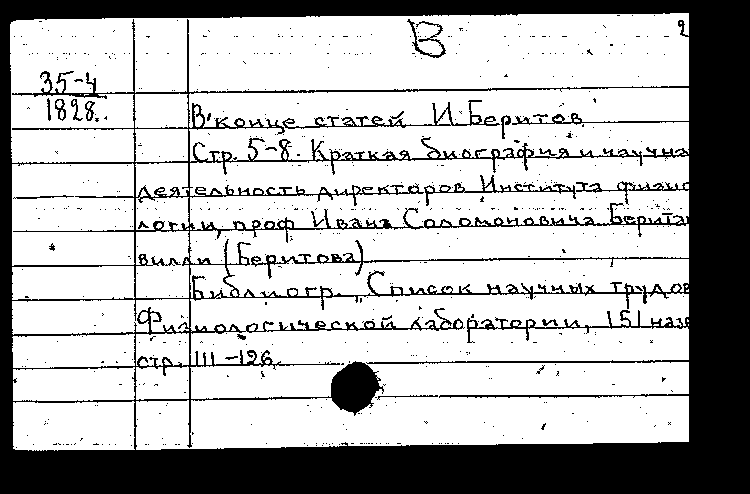 В 2
35-4
1828.
В конце статей И. Беритов
Стр. 5-8. Краткая биография и научна
деятельность директоров Института физио
логии, проф Ивана Соломоновича Берита
вилли (Беритова)
Библиогр. „Список научных трудов
Физиологической лаборатории, 151 назв
стр. 111-126.